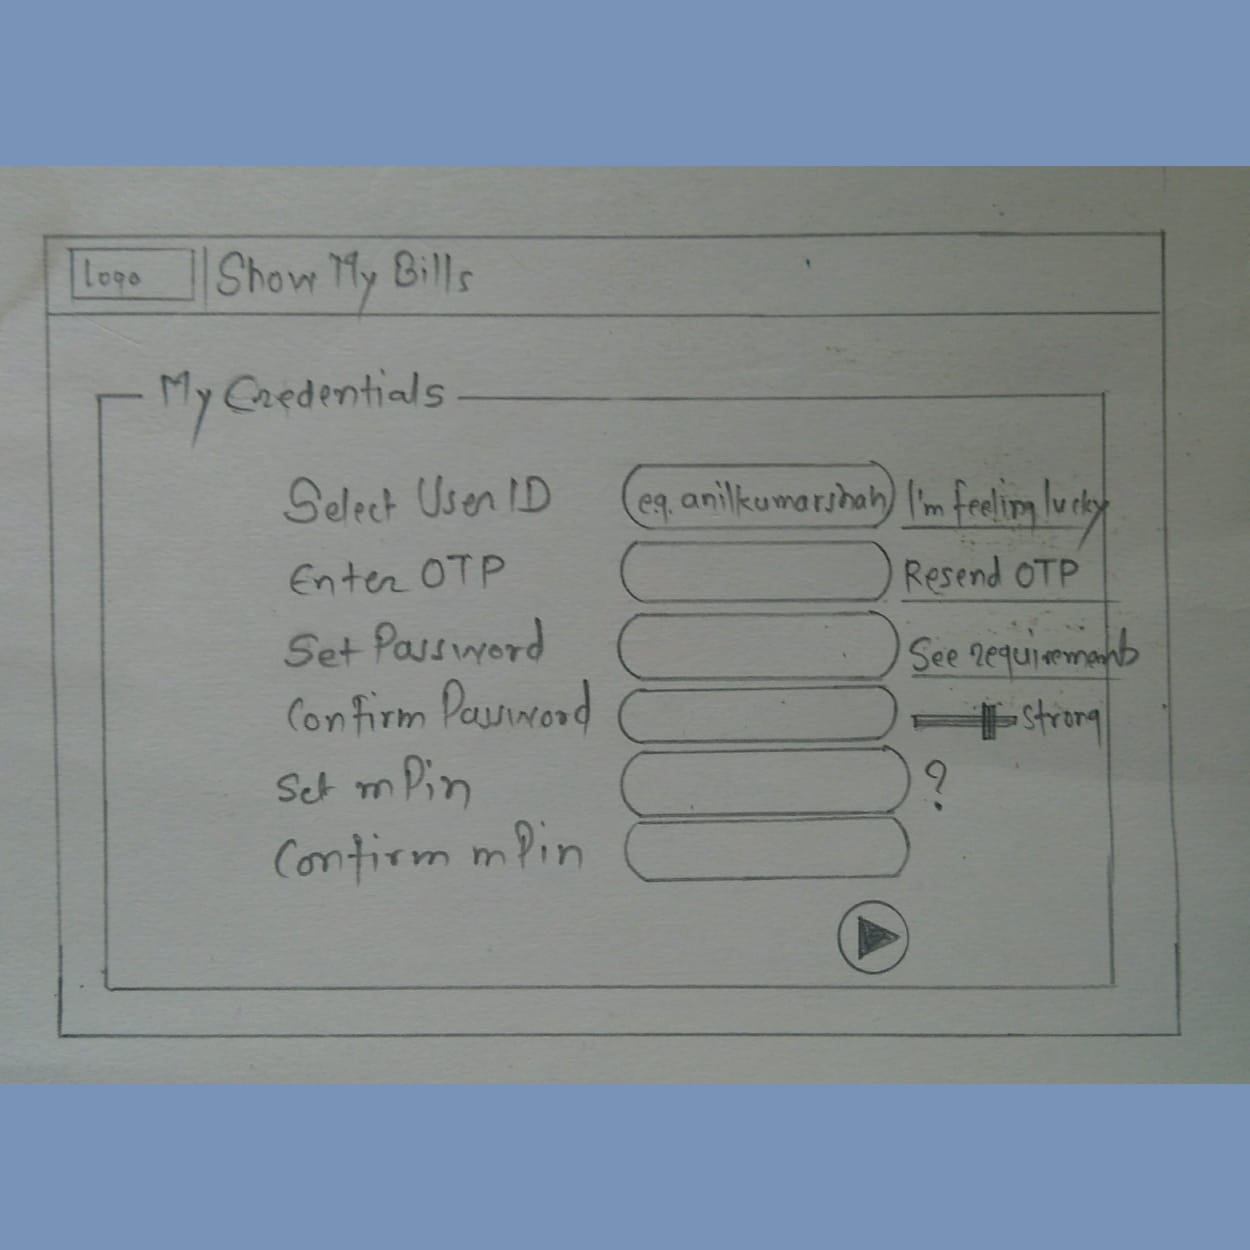 Logo Show My Bills
My Credentials
Select User ID eg. anilkumarshah I'm feeling lucky
Enter OTP Resend OTP
Set Password See requirements
Confirm Password Strong
Set mPin ?
Confirm mPin